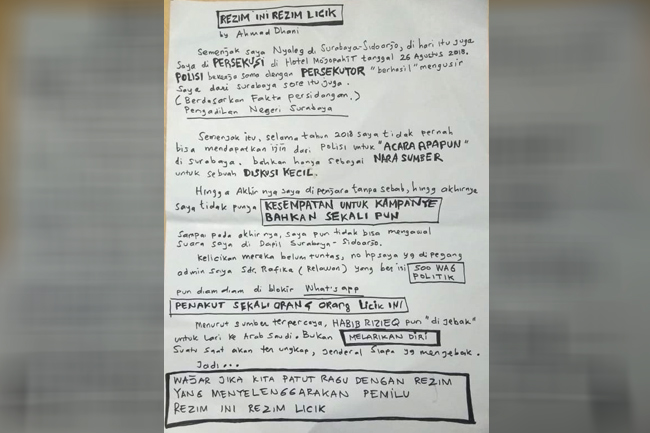 REZIM INI REZIM LICIK
by Ahmad Dhani
Semenjak saya Nyaleg di Surabaya-Sidoarjo, di hari itu juga
Saya di PERSEKUSI di Hotel Mojopahit tanggal 26 Agustus 2018.
POLISI bekerja sama dengan PERSEKUTOR "berhasil" mengusir
Saya dari Surabaya sore itu juga.
(Berdasarkan Fakta persidangan.)
Pengadilan Negeri Surabaya
Semenjak itu, selama tahun 2018 saya tidak pernah
bisa mendapatkan ijin dari polisi untuk "ACARA APAPUN"
di surabaya. bahkan hanya sebagai NARA SUMBER
untuk sebuah DISKUSI KECIL.
Hingga Akhirnya saya di penjara tanpa sebab, hingg akhirnya
saya tidak punya KESEMPATAN UNTUK KAMPANYE
BAHKAN SEKALI PUN
Sampai pada akhirnya, saya pun tidak bisa mengawal
suara saya di Dapil Surabaya-Sidoarjo.
Kelicikan mereka belum tuntas, no hp saya yg di pegang
admin saya Sdr. Rafika (Relawan) yang berisi 500 WAG
POLITIK
pun diam diam di blokir What's app
PENAKUT SEKALI ORANG orang Licik INI
Menurut sumber terpercaya, HABIB RIZIEQ pun "di jebak"
untuk Lari ke Arab Saudi. Bukan MELARIKAN DIRI
Suatu saat akan terungkap, jenderal siapa yg menjebak.
Jadi...
WAJAR JIKA KITA PATUT RAGU DENGAN REZIM
YANG MENYELENGGARAKAN PEMILU
REZIM INI REZIM LICIK